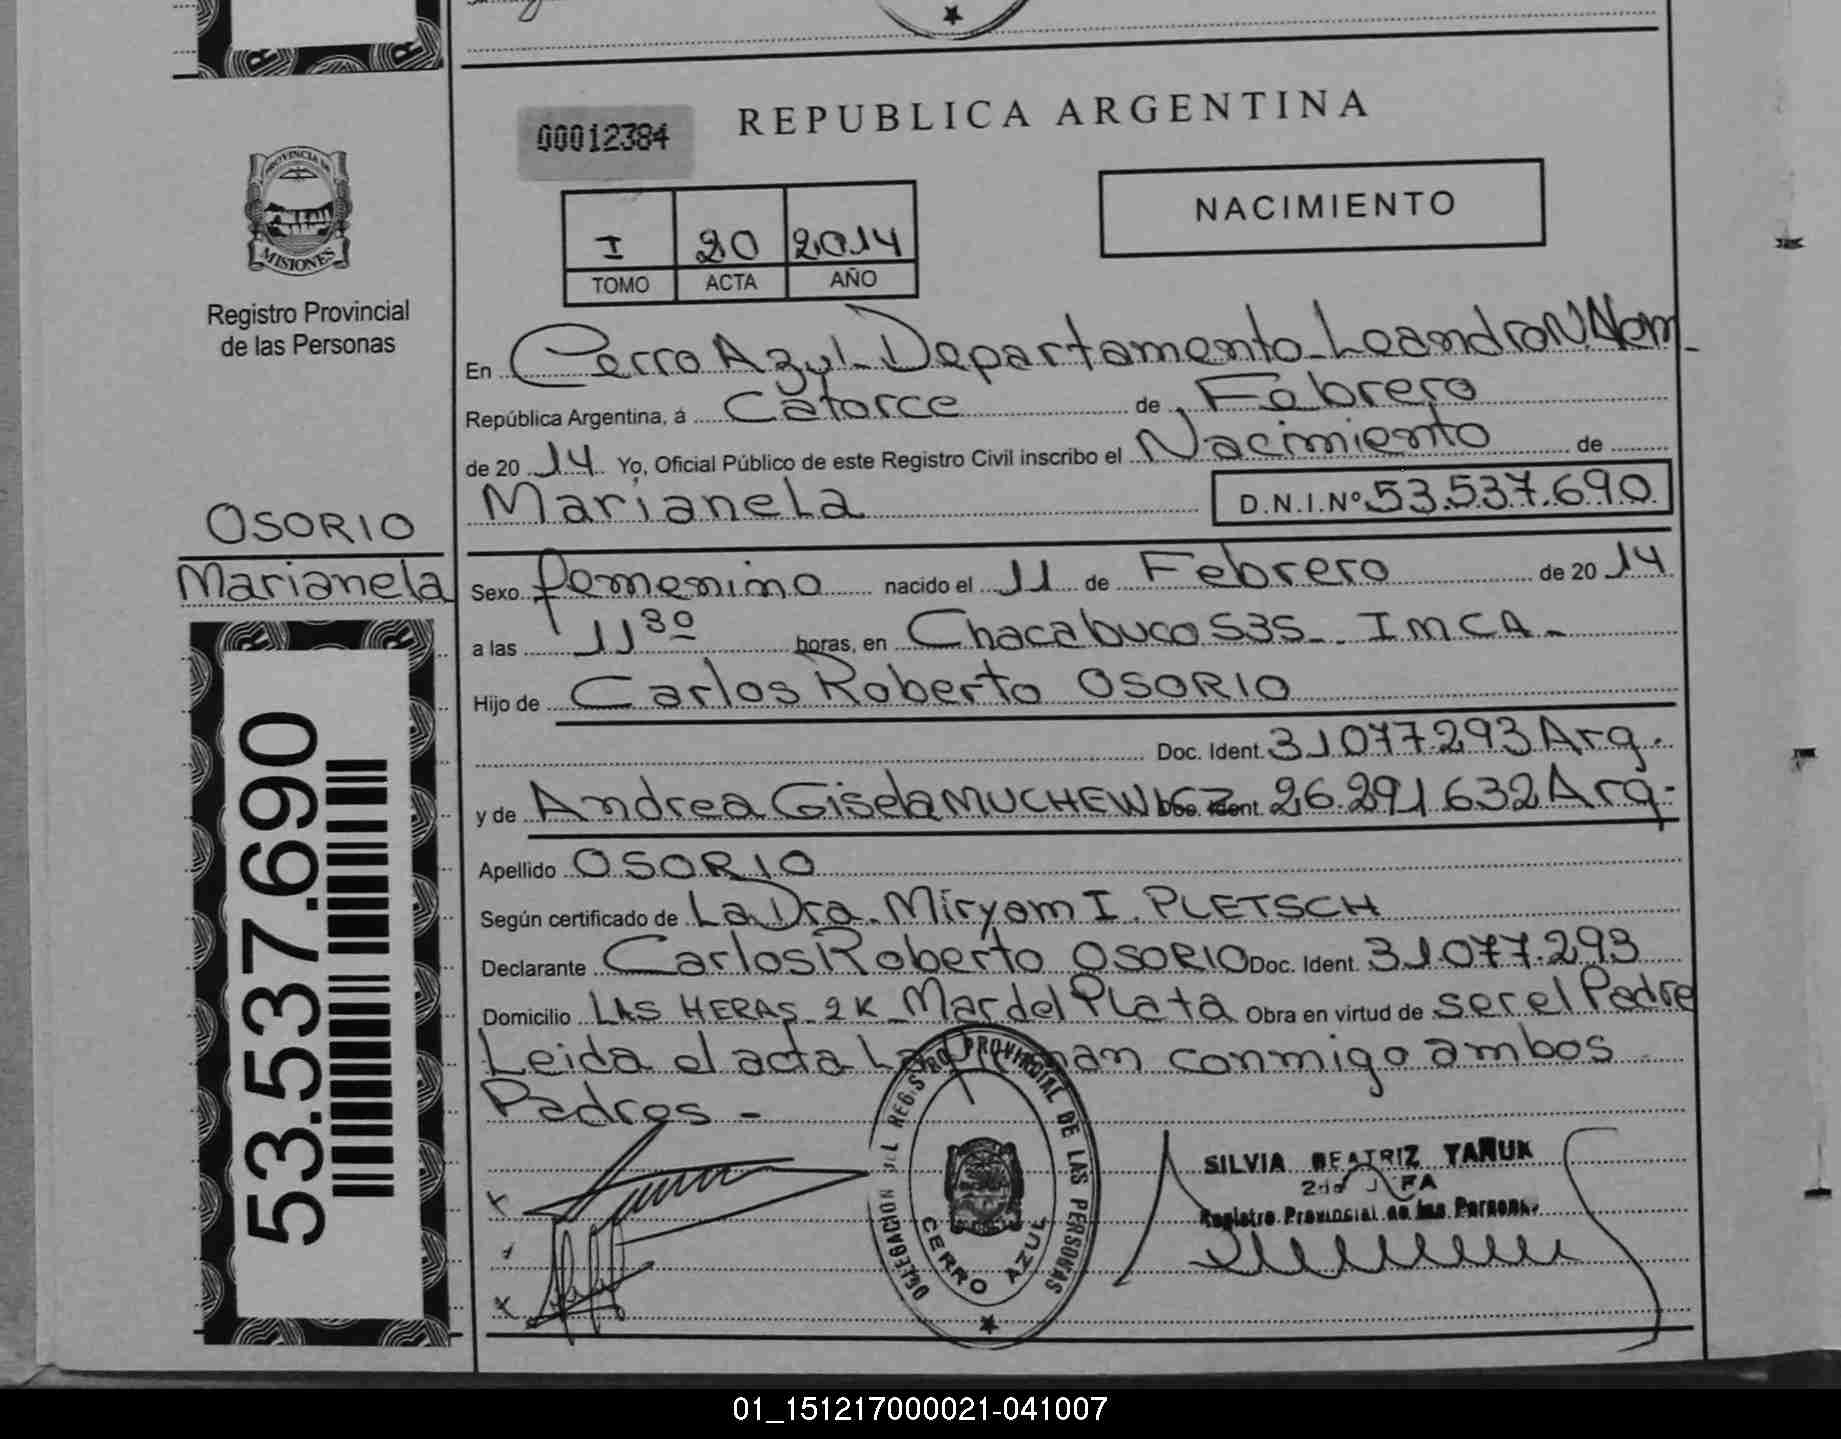 00012384
REPUBLICA ARGENTINA
NACIMIENTO
I 20 2014
TOMO ACTA AÑO
PROVINCIA DE
MISIONES
Registro Provincial
de las Personas
En Cerro Azul Departamento Leandro N. Alem
República Argentina, á Catorce de Febrero
de 20 14 Yo, Oficial Público de este Registro Civil inscribo el Nacimiento de
Marianela D.N.I.Nº 53.537.690
OSORIO
Marianela
Sexo femenino nacido el 11 de Febrero de 20 14
a las 11 30 horas, en Chacabuco 535 - IMCA -
Hijo de Carlos Roberto OSORIO
Doc. Ident. 31077293 Arg.
y de Andrea Gisela MUCHEWICZ Doc. Ident. 26.291632 Arg.
Apellido OSORIO
Según certificado de La Dra. Miryam I. PLETSCH
Declarante Carlos Roberto OSORIO Doc. Ident. 31.077.293
Domicilio LAS HERAS 2K - Mar del Plata Obra en virtud de ser el Padre
Leida el acta La conmigo ambos
Padres -
53.537.690
DELEGACION DEL REGISTRO PROVINCIAL DE LAS PERSONAS
CERRO AZUL
SILVIA BEATRIZ
Registro Provincial de las Personas
01_151217000021-041007